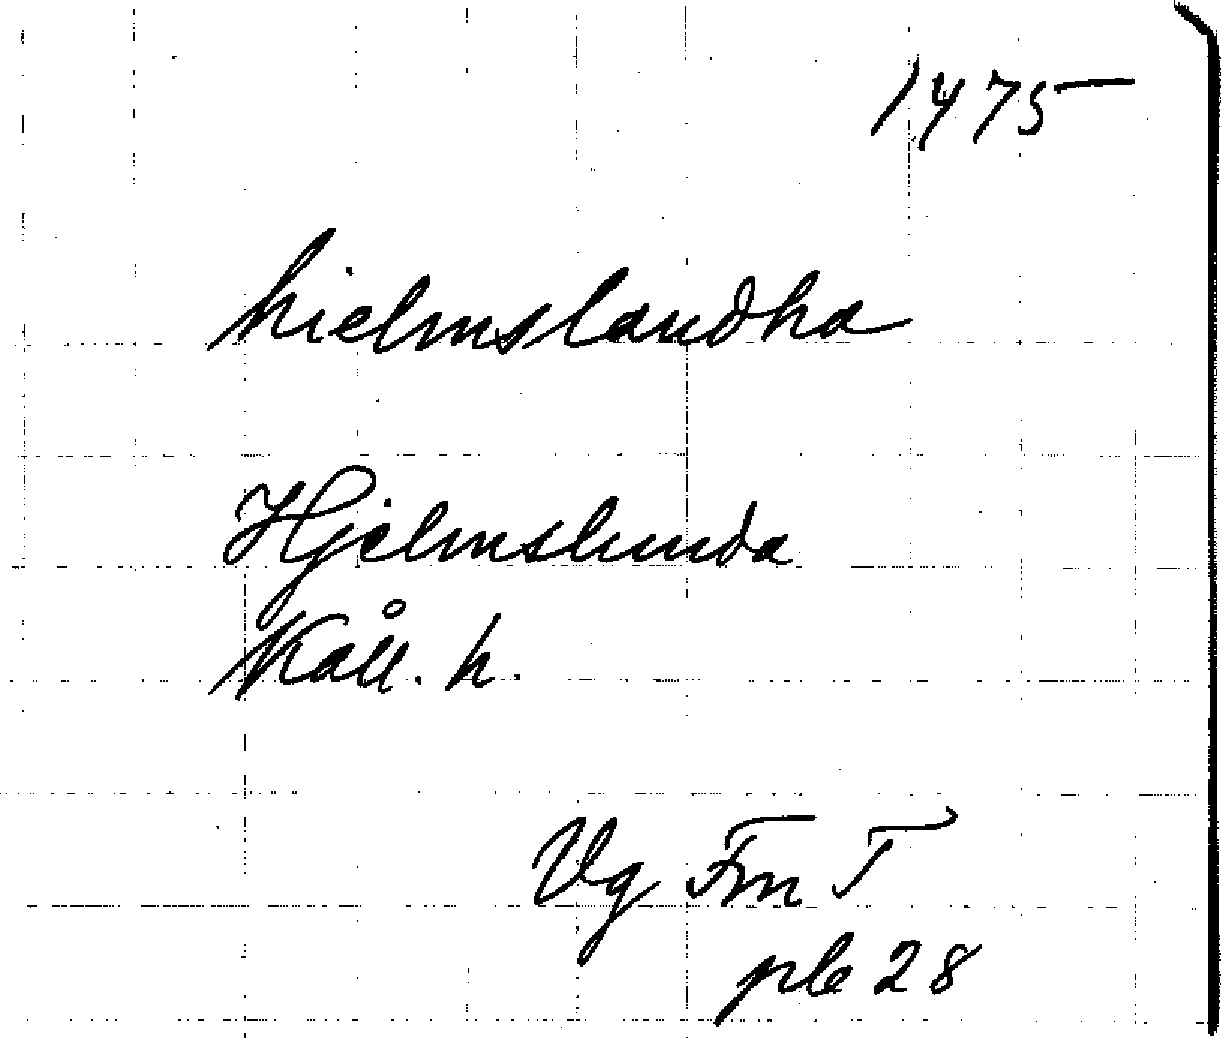 1475
hielmslandha
Hjelmslunda
Kåll. h.
Vg Fm T
plb 28